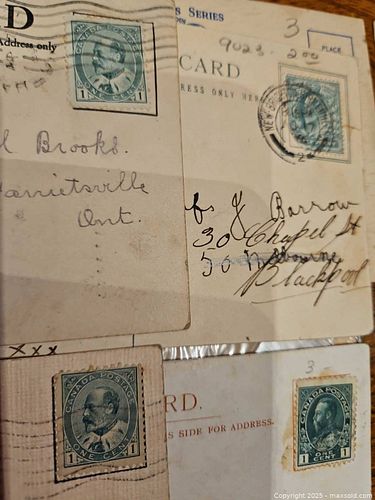 D
Address only
CANADA POSTAGE
1 ONE CENT 1
Brooks.
Harrietsville
Ont.
SERIES
3
PLACE
9023
2 00
CARD
RESS ONLY HERE
J Barrow
30 Chapel St
Blackpool
XXX
CANADA POSTAGE
ONE CENT 1
RD.
S SIDE FOR ADDRESS.
3
CANADA POSTAGE
1 ONE CENT 1
Copyright 2025 - maxsold.com